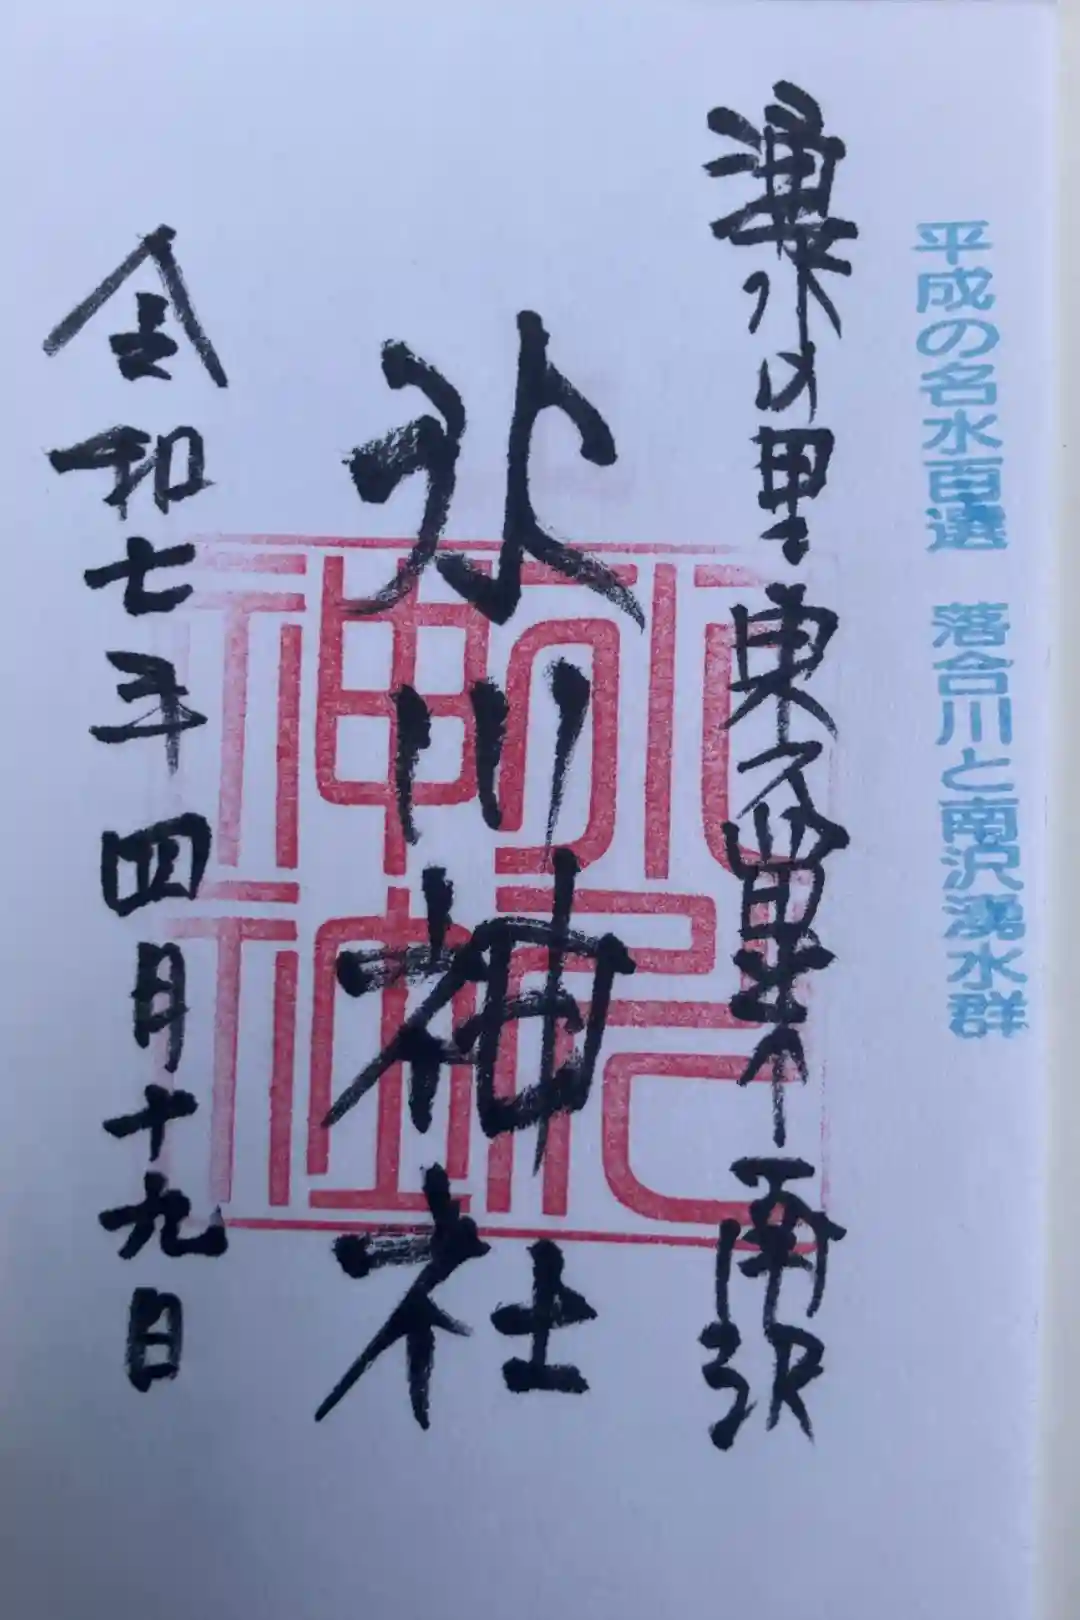 平成の名水百選 落合川と南沢湧水群
湧水の里東久留米南沢
氷川神社
令和七年四月十九日